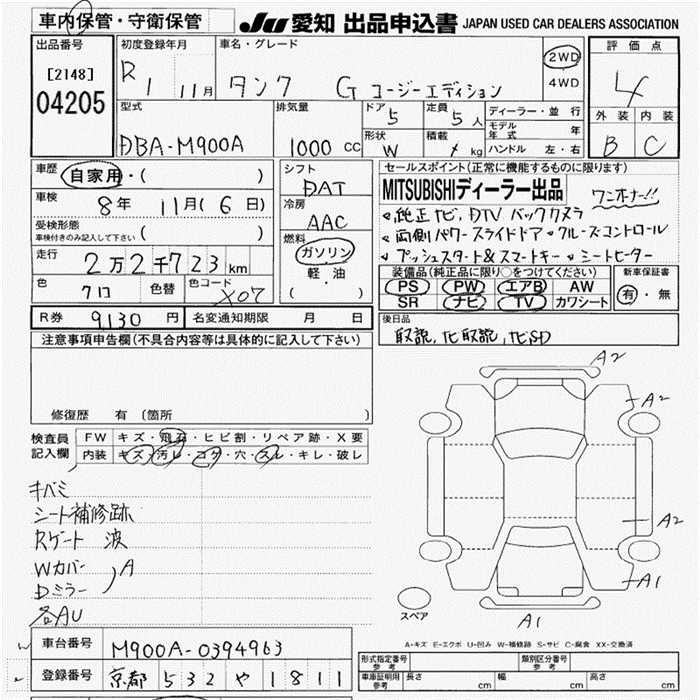 車内保管・守衛保管
JU 愛知 出品申込書 JAPAN USED CAR DEALERS ASSOCIATION
出品番号
[2148]
04205
初度登録年月
R 1 11月
車名・グレード
タンク G コージーエディション
2WD
4WD
評価点
4
外装 内装
B C
型式
DBA-M900A
排気量
1000 CC
ドア 5
定員 5人
形状 W
積載 kg
ディーラー・並行
モデル年式 年
ハンドル 左・右
車歴
自家用・( )
車検
8年 11月(6日)
受検形態
車検付きのみ記入して下さい ( )
走行
2万2千723km
色
クロ
色替
色コード
X07
シフト
DAT
冷房
AAC
燃料
ガソリン
軽・油
( )
セールスポイント(正常に機能するものに限ります)
MITSUBISHIディーラー出品 ワンオーナー!!
純正ナビ、DTV バックカメラ
両側パワースライドドア クルーズコントロール
プッシュスタート&スマートキー シートヒーター
装備品(純正品に限り○をつけてください)
PS PW エアB AW
SR ナビ TV カワシート
新車保証書
有・無
R券 9130円
名変通知期限 月 日
後日品
取説、ナビ取説、ナビSD
注意事項申告欄(不具合内容等は具体的に記入して下さい)
修復歴 有 〔箇所 〕
検査員記入欄
FW キズ・飛石・ヒビ割・リペア跡・X要
内装 キズ・汚レ・コゲ・穴・スレ・キレ・破レ
キバミ
シート補修跡
Rゲート 波
Wカバー
Dミラー
A
各AU
A2
A2
A2
A1
A1
スペア
A-キズ E-エクボ U-凹み W-補修跡 S-サビ C-腐食 XX-交換済
車台番号 M900A-0394963
登録番号 京都 532 や 1811
形式指定番号 参考
類別区分番号 参考
車庫証明用 参考 長さ cm 幅 cm 高さ cm